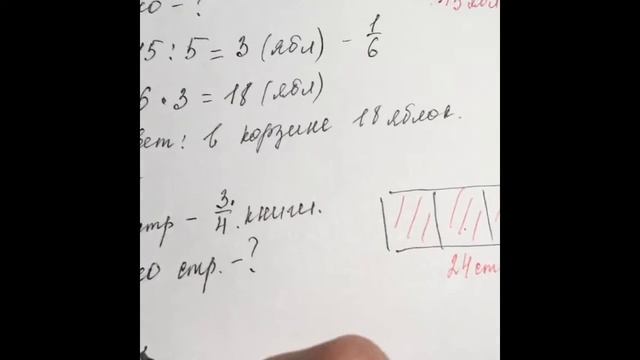 со - ?
15 : 5 = 3 (ябл) - 1/6
6 • 3 = 18 (ябл)
вет: в корзине 18 яблок.
стр - 3/4 книги.
го стр. - ?
24 ст